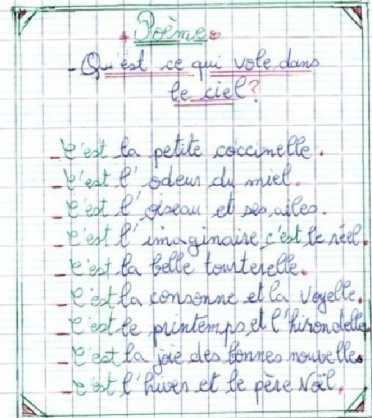 Poème
- Qu'est ce qui vole dans
le ciel?
- C'est la petite coccinelle.
- C'est l'odeur du miel.
- C'est l'oiseau et ses ailes.
- C'est l'imaginaire, c'est le réel.
- C'est la belle tourterelle.
- C'est la consonne et la voyelle.
- C'est le printemps et l'hirondelle
- C'est la joie des bonnes nouvelles
- C'est l'hiver et le père Noël.